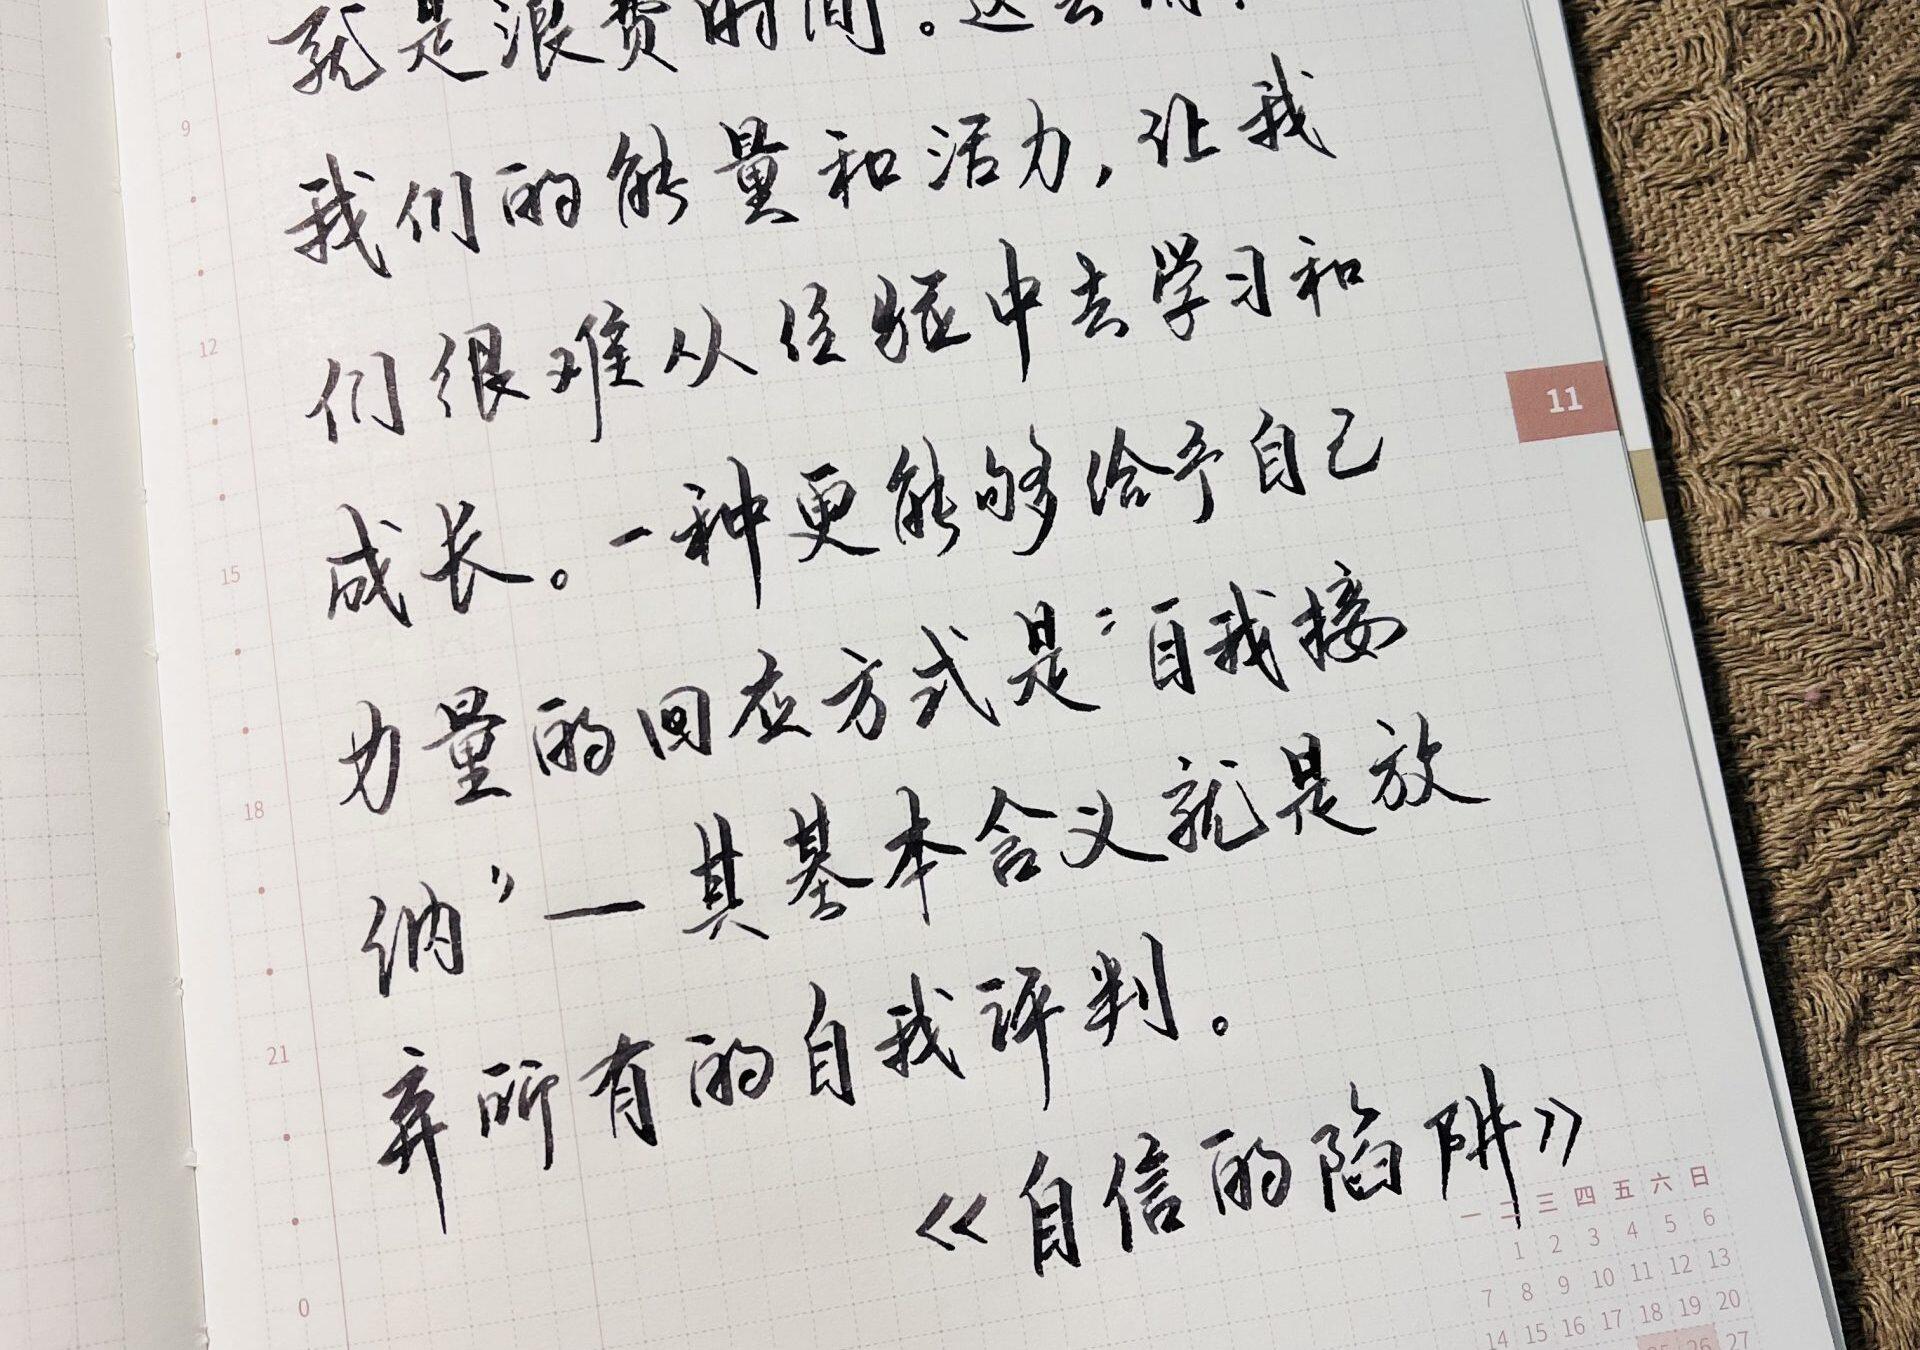 就是浪费时间。这会消
我们的能量和活力，让我
们很难从经验中去学习和
成长。一种更能够给予自己
力量的回应方式是“自我接
纳”—其基本含义就是放
弃所有的自我评判。
《自信的陷阱》
9
12
15
18
21
0
11
一 二 三 四 五 六 日
1 2 3 4 5 6
7 8 9 10 11 12 13
14 15 16 17 18 19 20
25 26 27